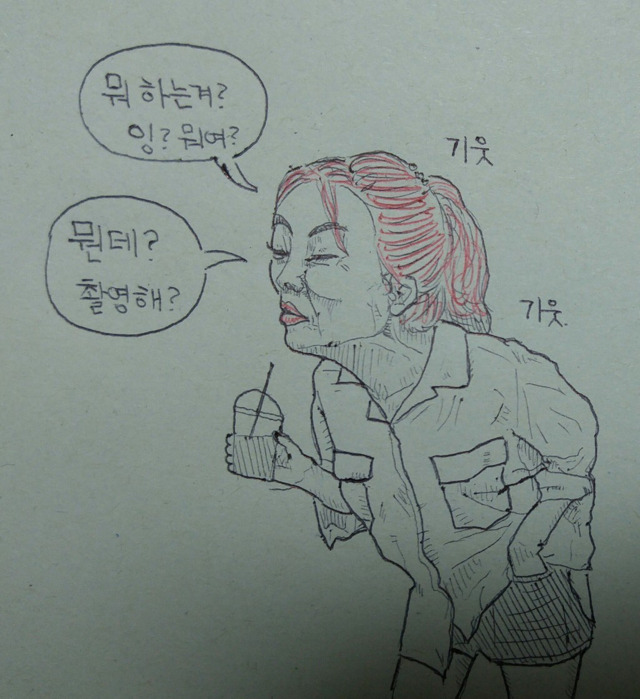 뭐 하는겨?
잉? 뭐여?
뭔데?
촬영해?
기웃
기웃